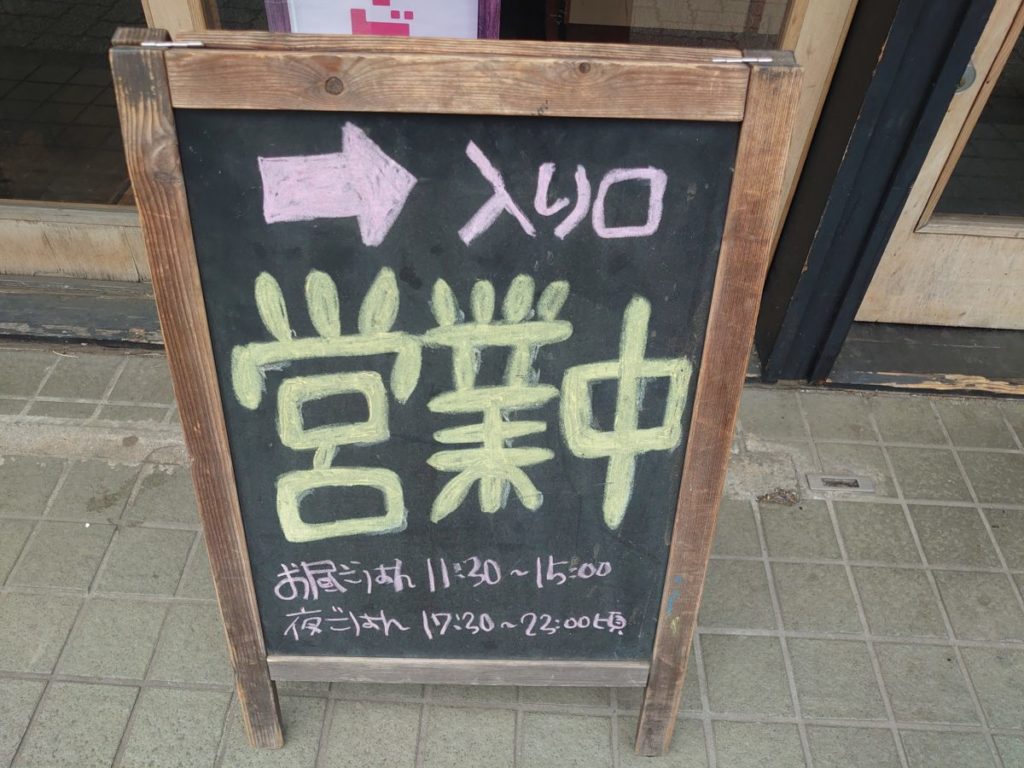 入り口
営業中
お昼ごはん 11:30~15:00
夜ごはん 17:30~22:00頃